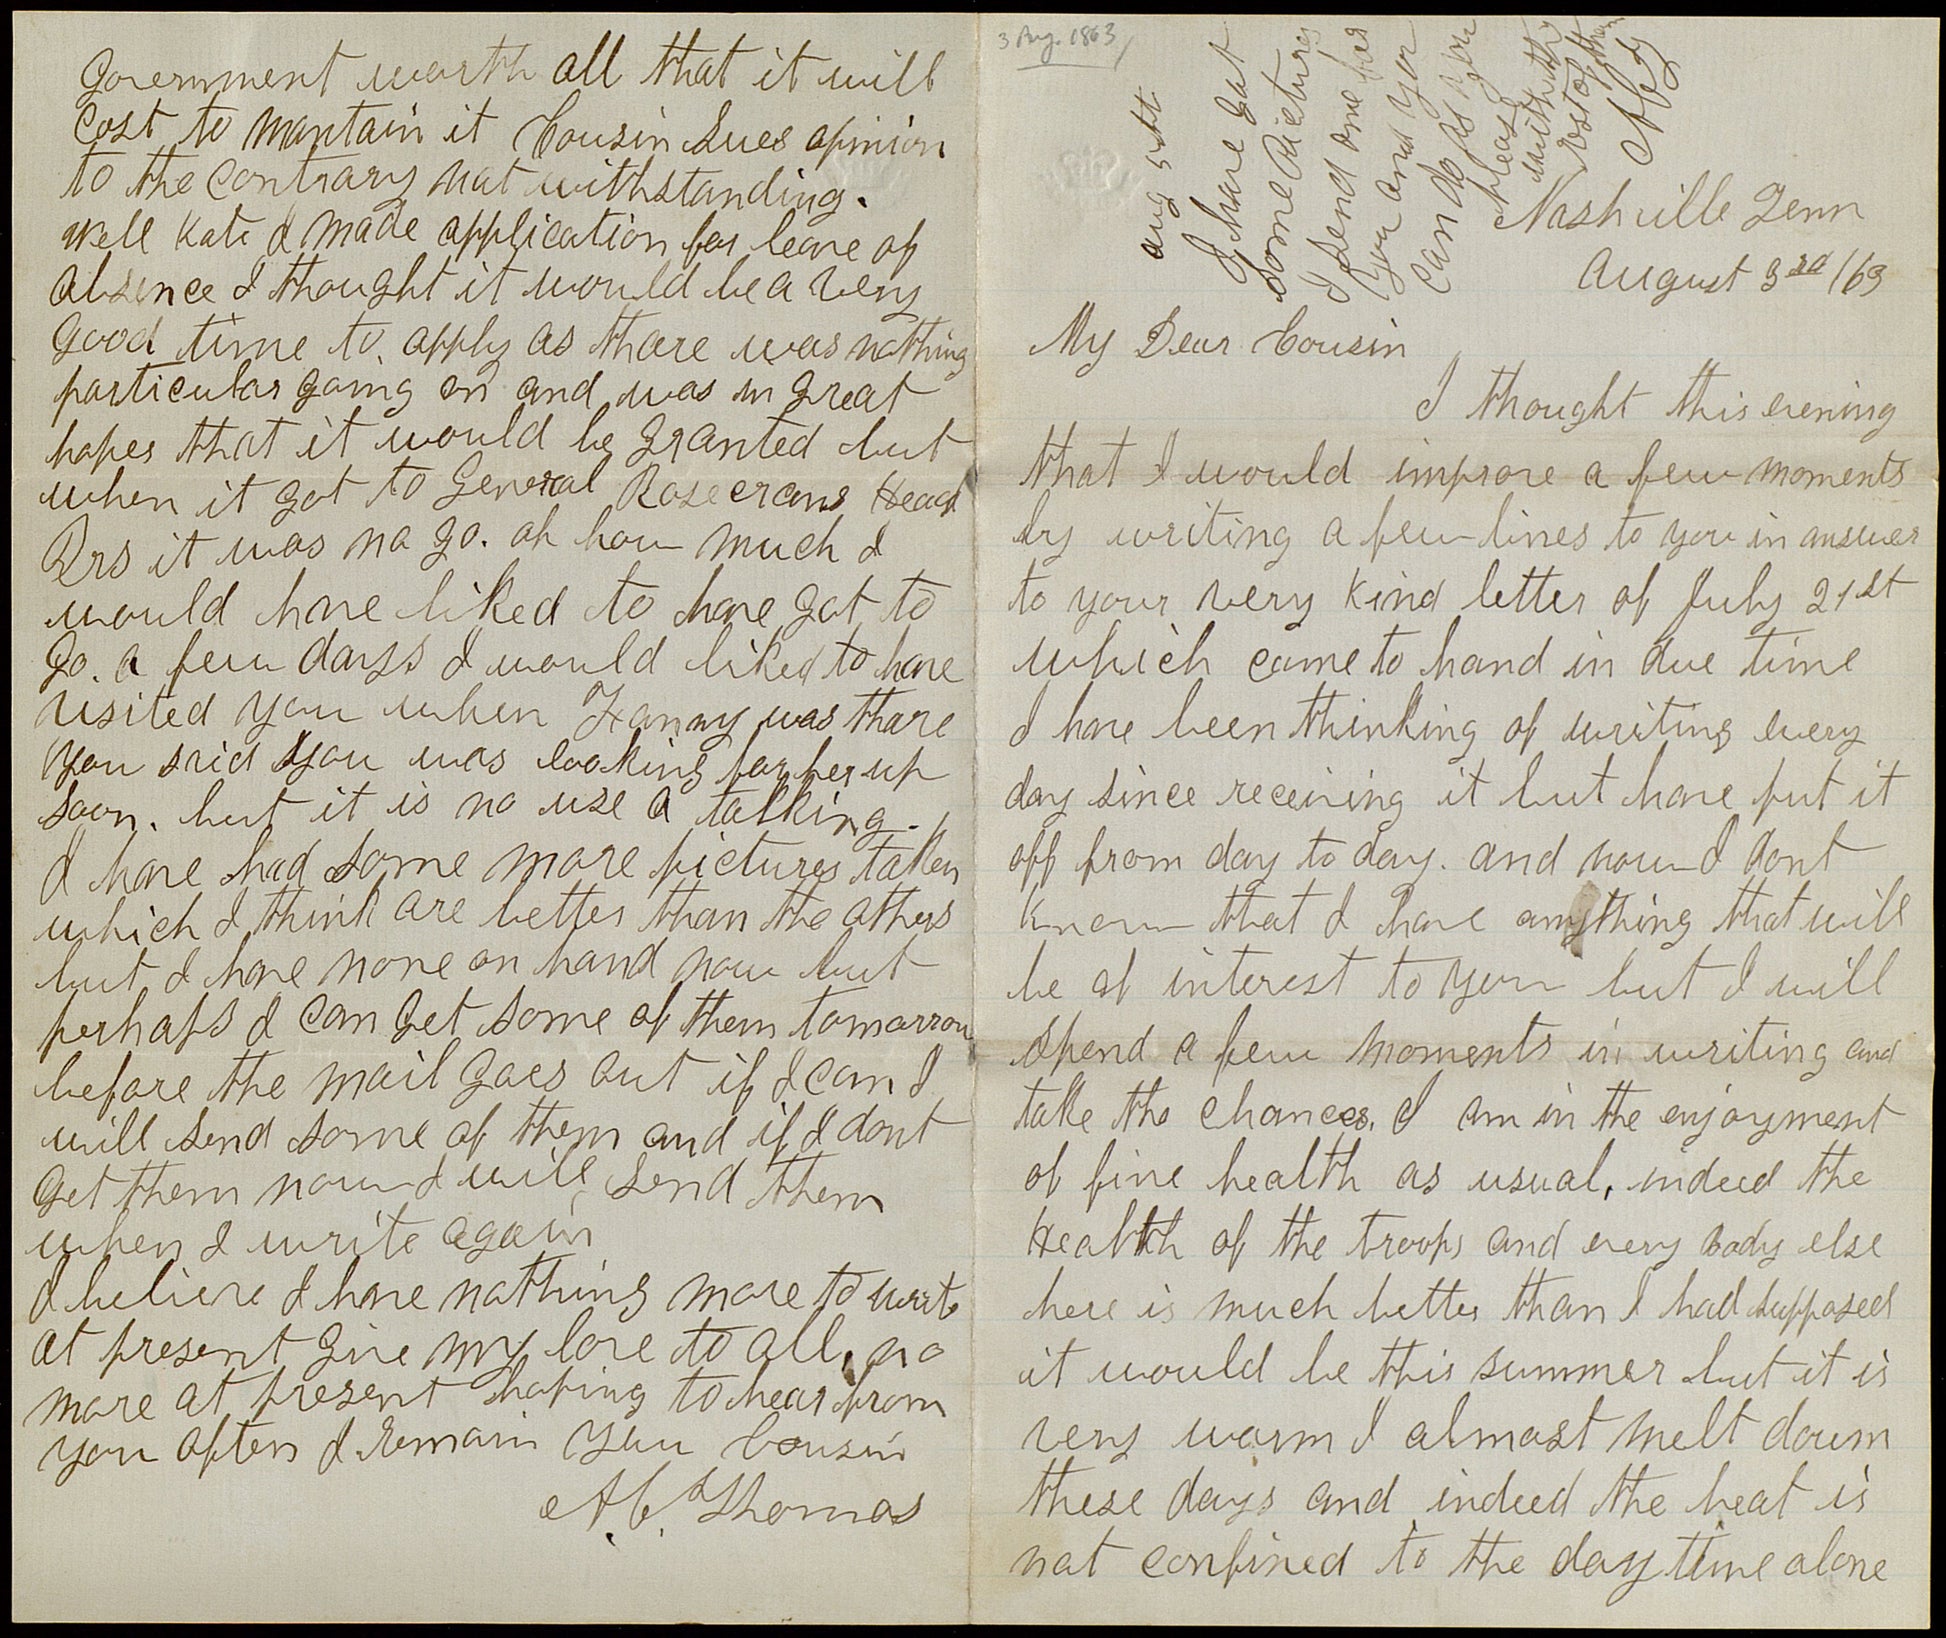 3 Aug. 1863
Aug 5th
I have Got
Some Pictures
I Send one for
you and you
can do as you
please
with the
rest of them
Nashville Tenn
August 3rd /63
My Dear Cousin
I thought this evening
that I would improve a few moments
by writing a few lines to you in answer
to your very kind letter of July 21st
which came to hand in due time
I have been thinking of writing every
day since receiving it but have put it
off from day to day. and now I dont
know that I have anything that will
be of interest to you but I will
spend a few moments in writing and
take the chances. I am in the enjoyment
of fine health as usual, indeed the
Health of the troops and every body else
here is much better than I had supposed
it would be this summer but it is
very warm I almost melt down
these days and indeed the heat is
not confined to the day time alone
Government worth all that it will
cost to mantain it Cousin Sues opinion
to the contrary not withstanding.
Well Kate I made application for leave of
absence I thought it would be a very
good time to apply as thare was nothing
particular going on and was in great
hopes that it would be granted but
when it got to General Rosecrans Head
Qrs it was no go. oh how much I
would have liked to have got to
go. a few days I would liked to have
visited you when Fanny was thare
you said you was looking for her up
soon. but it is no use a talking.
I have had some more pictures taken
which I think are better than the others
but I have none on hand now but
perhaps I can get some of them tomorrow
before the mail goes out if I can I
will send some of them and if I dont
get them now I will send them
when I write again
I believe I have nothing more to write
at present give my love to all, no
more at present hoping to hear from
you often I remain your Cousin
A. C. Thomas